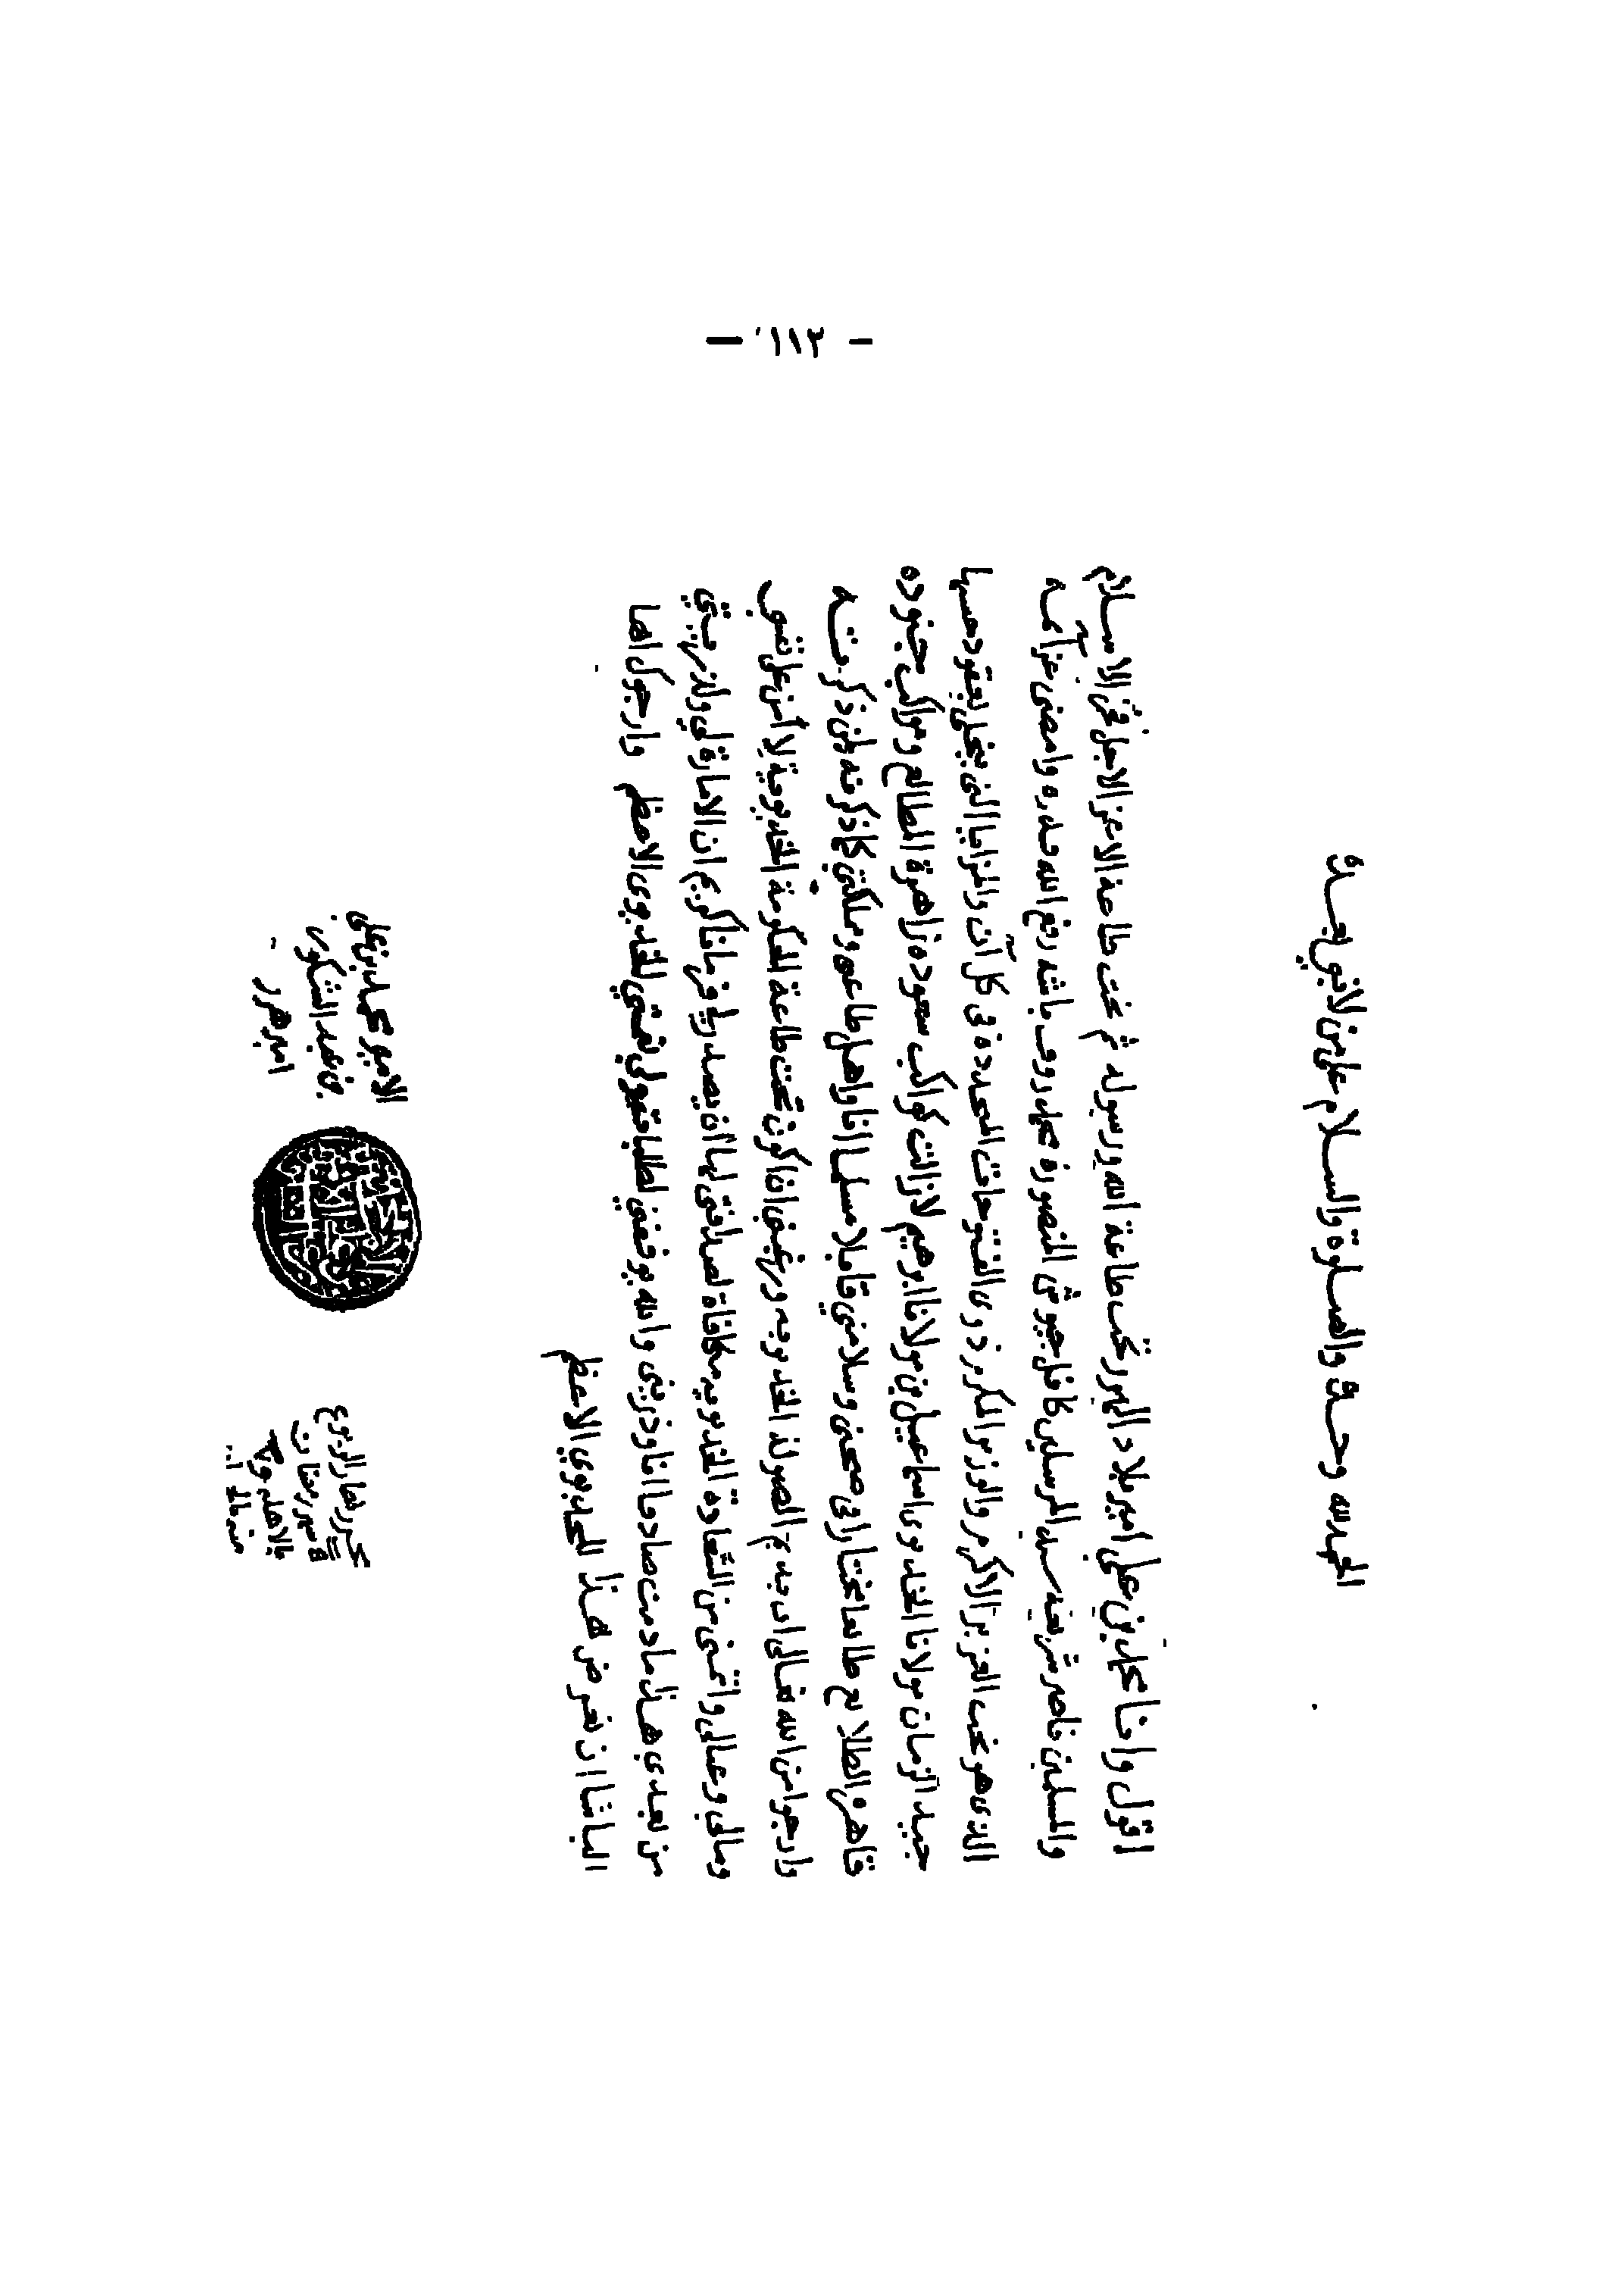 — ١١٣ —
الحمد لله وحده والصلوة والسلام على من لا نبي بعده
اقول وانا محمد بن علي امير بلاد الهرر تحت طاعة الله ورسوله ثم تحت طاعة الاعز الاجل فخر الاسلام
والمسلمين ناصر شريعة سيد المرسلين كافل جيوش المنصورة محمد روف باشه رفع الله قدره وامضى عزائمه
الذى هو تحت العزيز الاكرم والوزير المكرم ذوى الفتوحات المحدده فى كل آن والمزايا التى تحلى بعقودها
جيد الزمان مولانا الخديوى اسماعيل بن مولانا ابرهيم لازالت كواكب سعوده زاهرة المطالع ومواكب جنوده
قاهرة الطلايع طايعا مختارا فى صحتى وسلامتي قابلا مسلما انا واهل طاعه ومملكتى كما ذكر فيه
وارجو من الله تعالى اى تبديع اصول الخديويه ورغبتى ان اكون تحت طاعة الحكومة الخديوية لا من على نفسى
ومالي وعيالى واتمنى من السعادة الخديويه مكافاة لصداقتى لها ان يصدر لي فرمانا كريم ان الامارة لي ولذريتي
من بعدى هذا مادمت صادقا انا وذريتى والله يوفقنى لطلبا حقوقي لنفسي الخديوى الاعظم وارجوك ايها
الباشا ان تعرض هذا للخديوي الاعظم
الامير محمد بن على
بن عبد الشكور
امير هرر